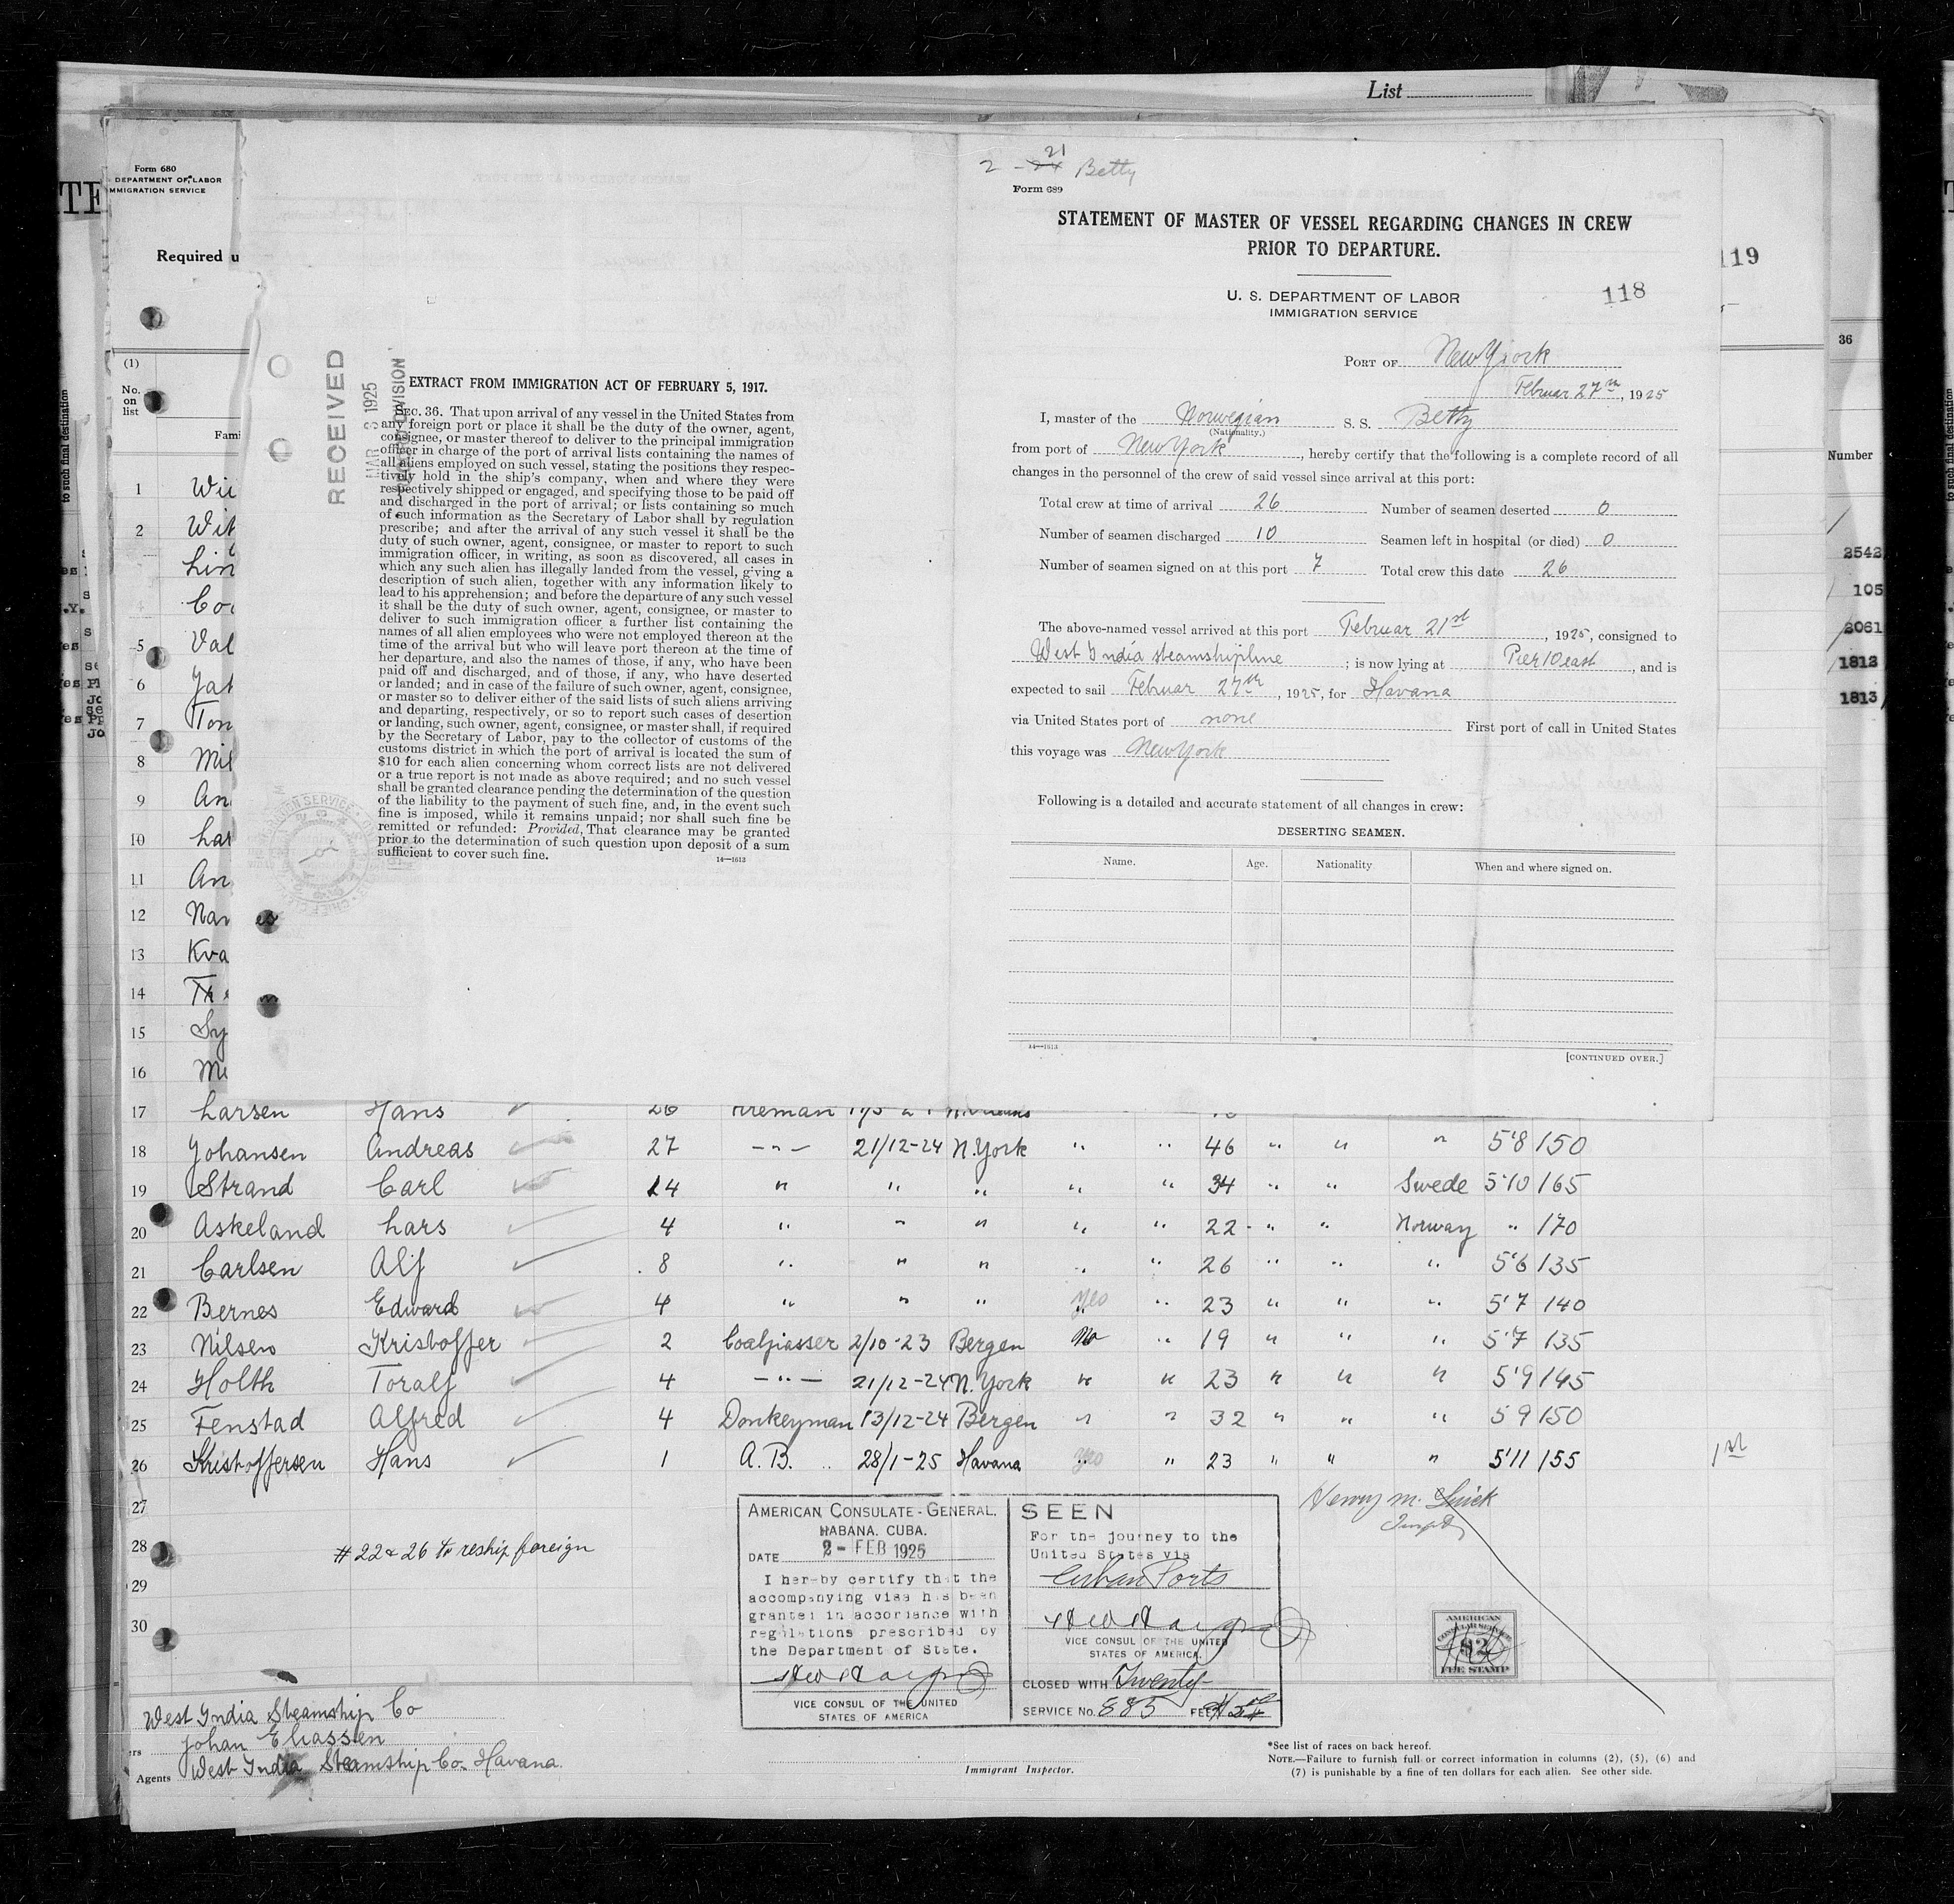 List
Form 680
DEPARTMENT OF LABOR
IMMIGRATION SERVICE
Required u
(1)
No.
on
list
Fami
1 Wii
2 Wit
Lin
4 Coo
5 Val
6 Jat
7 Ton
8 Mil
9 An
10 Lar
11 An
12 Nar
13 Kva
14
15 Sy
16
RECEIVED
MAR 3 1925
DIVISION
EXTRACT FROM IMMIGRATION ACT OF FEBRUARY 5, 1917.
SEC. 36. That upon arrival of any vessel in the United States from
any foreign port or place it shall be the duty of the owner, agent,
consignee, or master thereof to deliver to the principal immigration
officer in charge of the port of arrival lists containing the names of
all aliens employed on such vessel, stating the positions they respec-
tively hold in the ship's company, when and where they were
respectively shipped or engaged, and specifying those to be paid off
and discharged in the port of arrival; or lists containing so much
of such information as the Secretary of Labor shall by regulation
prescribe; and after the arrival of any such vessel it shall be the
duty of such owner, agent, consignee, or master to report to such
immigration officer, in writing, as soon as discovered, all cases in
which any such alien has illegally landed from the vessel, giving a
description of such alien, together with any information likely to
lead to his apprehension; and before the departure of any such vessel
it shall be the duty of such owner, agent, consignee, or master to
deliver to such immigration officer a further list containing the
names of all alien employees who were not employed thereon at the
time of the arrival but who will leave port thereon at the time of
her departure, and also the names of those, if any, who have been
paid off and discharged, and of those, if any, who have deserted
or landed; and in case of the failure of such owner, agent, consignee,
or master so to deliver either of the said lists of such aliens arriving
and departing, respectively, or so to report such cases of desertion
or landing, such owner, agent, consignee, or master shall, if required
by the Secretary of Labor, pay to the collector of customs of the
customs district in which the port of arrival is located the sum of
$10 for each alien concerning whom correct lists are not delivered
or a true report is not made as above required; and no such vessel
shall be granted clearance pending the determination of the question
of the liability to the payment of such fine, and, in the event such
fine is imposed, while it remains unpaid; nor shall such fine be
remitted or refunded: Provided, That clearance may be granted
prior to the determination of such question upon deposit of a sum
sufficient to cover such fine.
14—1613
2 - 24 21 Betty
Form 689
STATEMENT OF MASTER OF VESSEL REGARDING CHANGES IN CREW
PRIOR TO DEPARTURE.
U. S. DEPARTMENT OF LABOR
IMMIGRATION SERVICE
118
119
PORT OF New York
Februar 27th, 1925
I, master of the Norwegian S. S. Betty
(Nationality.)
from port of New York, hereby certify that the following is a complete record of all
changes in the personnel of the crew of said vessel since arrival at this port:
Total crew at time of arrival 26 Number of seamen deserted 0
Number of seamen discharged 10 Seamen left in hospital (or died) 0
Number of seamen signed on at this port 7 Total crew this date 26
The above-named vessel arrived at this port Februar 21st, 1925, consigned to
West India steamshipline; is now lying at Pier 10 east, and is
expected to sail Februar 27th, 1925, for Havana
via United States port of none First port of call in United States
this voyage was New York
Following is a detailed and accurate statement of all changes in crew:
DESERTING SEAMEN.
Name. Age. Nationality When and where signed on.
14—1613
[CONTINUED OVER.]
36
Number
2542
105
2061
1812
1813
to such final destination
17 Larsen Hans 26 Fireman
18 Johansen Andreas 27 -"- 21/12-24 N.York " " 46 " " " 5'8 150
19 Strand Carl 14 " " " " " 34 " " Swede 5'10 165
20 Askeland Lars 4 " " " " " 22 " " Norway " 170
21 Carlsen Alf 8 " " " " " 26 " " " 5'6 135
22 Bernes Edward 4 " " " Yes " 23 " " " 5'7 140
23 Nilsen Kristoffer 2 Coalpasser 2/10-23 Bergen No " 19 " " " 5'7 135
24 Holth Toralf 4 -"- 21/12-24 N. York " " 23 " " " 5'9 145
25 Fenstad Alfred 4 Donkeyman 13/12-24 Bergen " " 32 " " " 5 9 150
26 Kristoffersen Hans 1 A.B. 28/1-25 Havana Yes " 23 " " " 5'11 155 1st
27
28 #22 & 26 to reship foreign
29
30
Henry M.
AMERICAN CONSULATE-GENERAL.
HABANA. CUBA.
DATE 2- FEB 1925
I hereby certify that the
accompanying visa has been
granted in accordance with
regulations prescribed by
the Department of State.
VICE CONSUL OF THE UNITED
STATES OF AMERICA
SEEN
For the journey to the
United States via
Cuban Ports
VICE CONSUL OF THE UNITED
STATES OF AMERICA.
CLOSED WITH Twenty-
SERVICE No. 885 FEE
AMERICAN
CONSULAR SERVICE
$2
FEE STAMP
West India Steamship Co
Johan Eliassen
Agents West India Steamship Co. Havana.
Immigrant Inspector.
*See list of races on back hereof.
NOTE.—Failure to furnish full or correct information in columns (2), (5), (6) and
(7) is punishable by a fine of ten dollars for each alien. See other side.